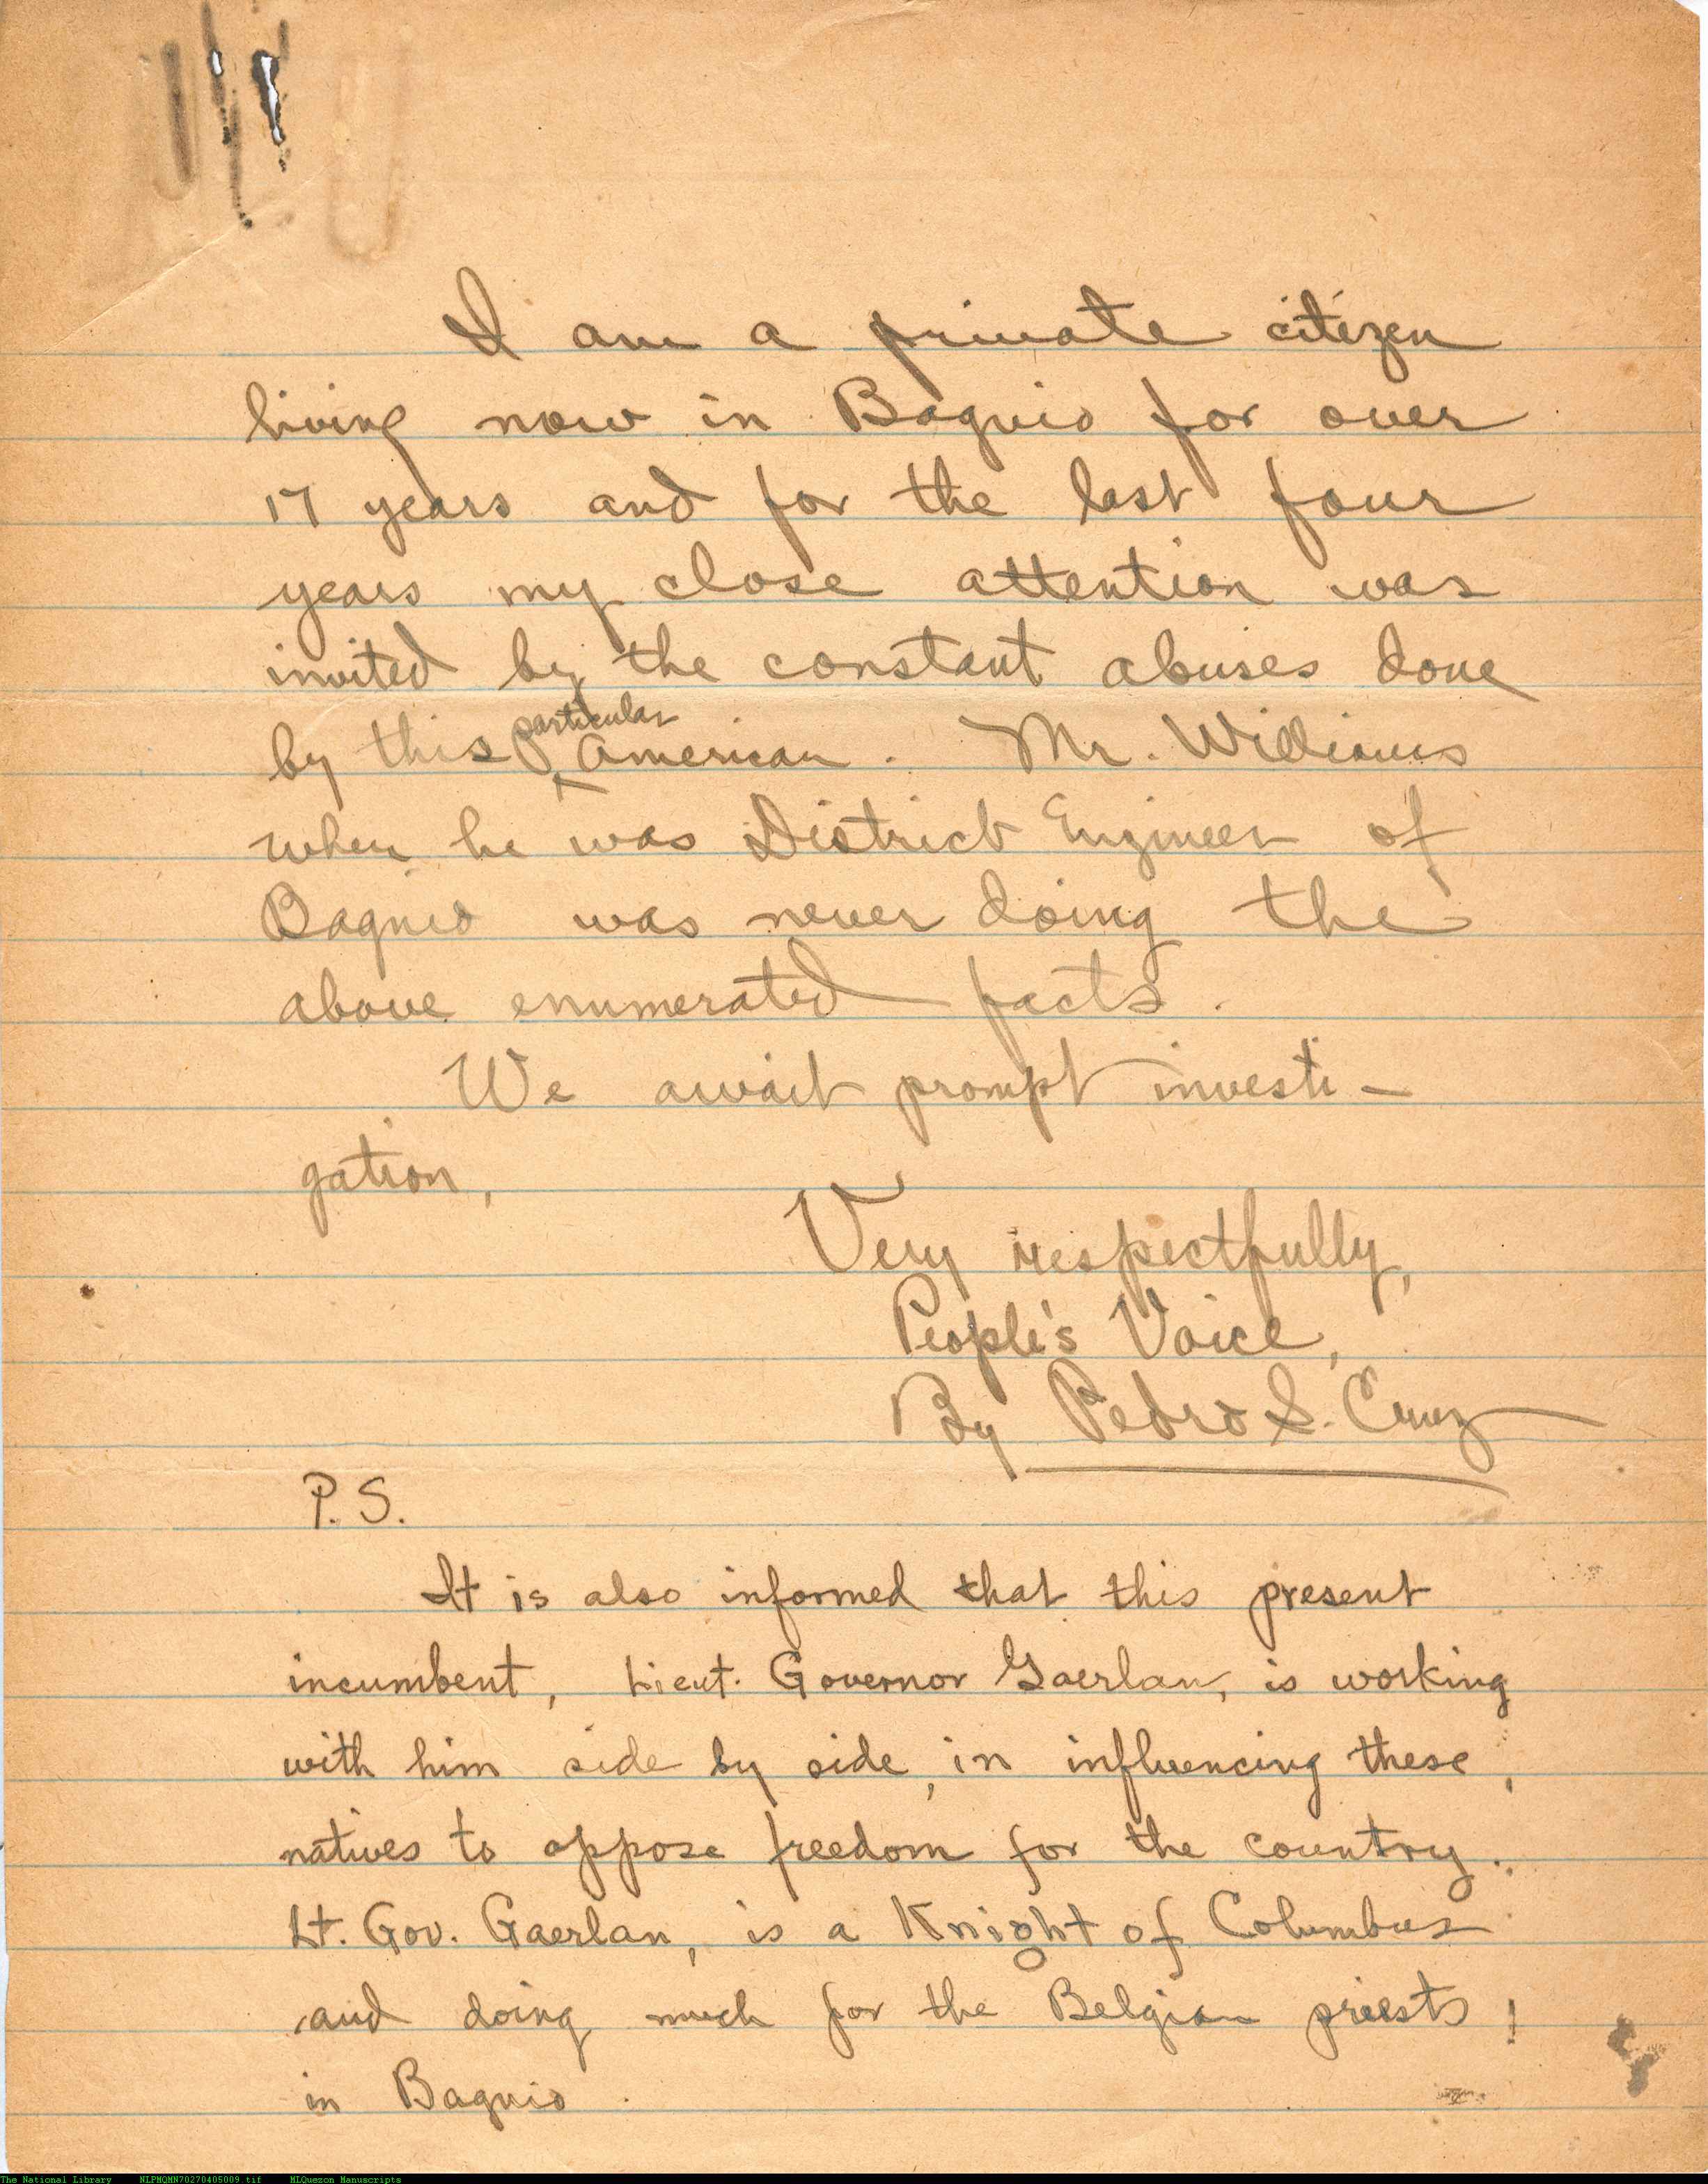 I am a private citizen
living now in Baguio for over
17 years and for the last four
years my close attention was
invited by the constant abuses done
by this particular American. Mr. Williams
when he was District Engineer of
Baguio was never doing the
above enumerated facts.
We await prompt investi-
gation,
Very respectfully,
People's Voice,
By Pedro S. Cruz
P.S.
It is also informed that this present
incumbent, Lieut. Governor Gaerlan, is working
with him side by side, in influencing these
natives to oppose freedom for the country.
Lt. Gov. Gaerlan, is a Knight of Columbus
and doing much for the Belgian priests
in Baguio.
The National Library NLPMQMN70270405009.tif MLQuezon Manuscripts